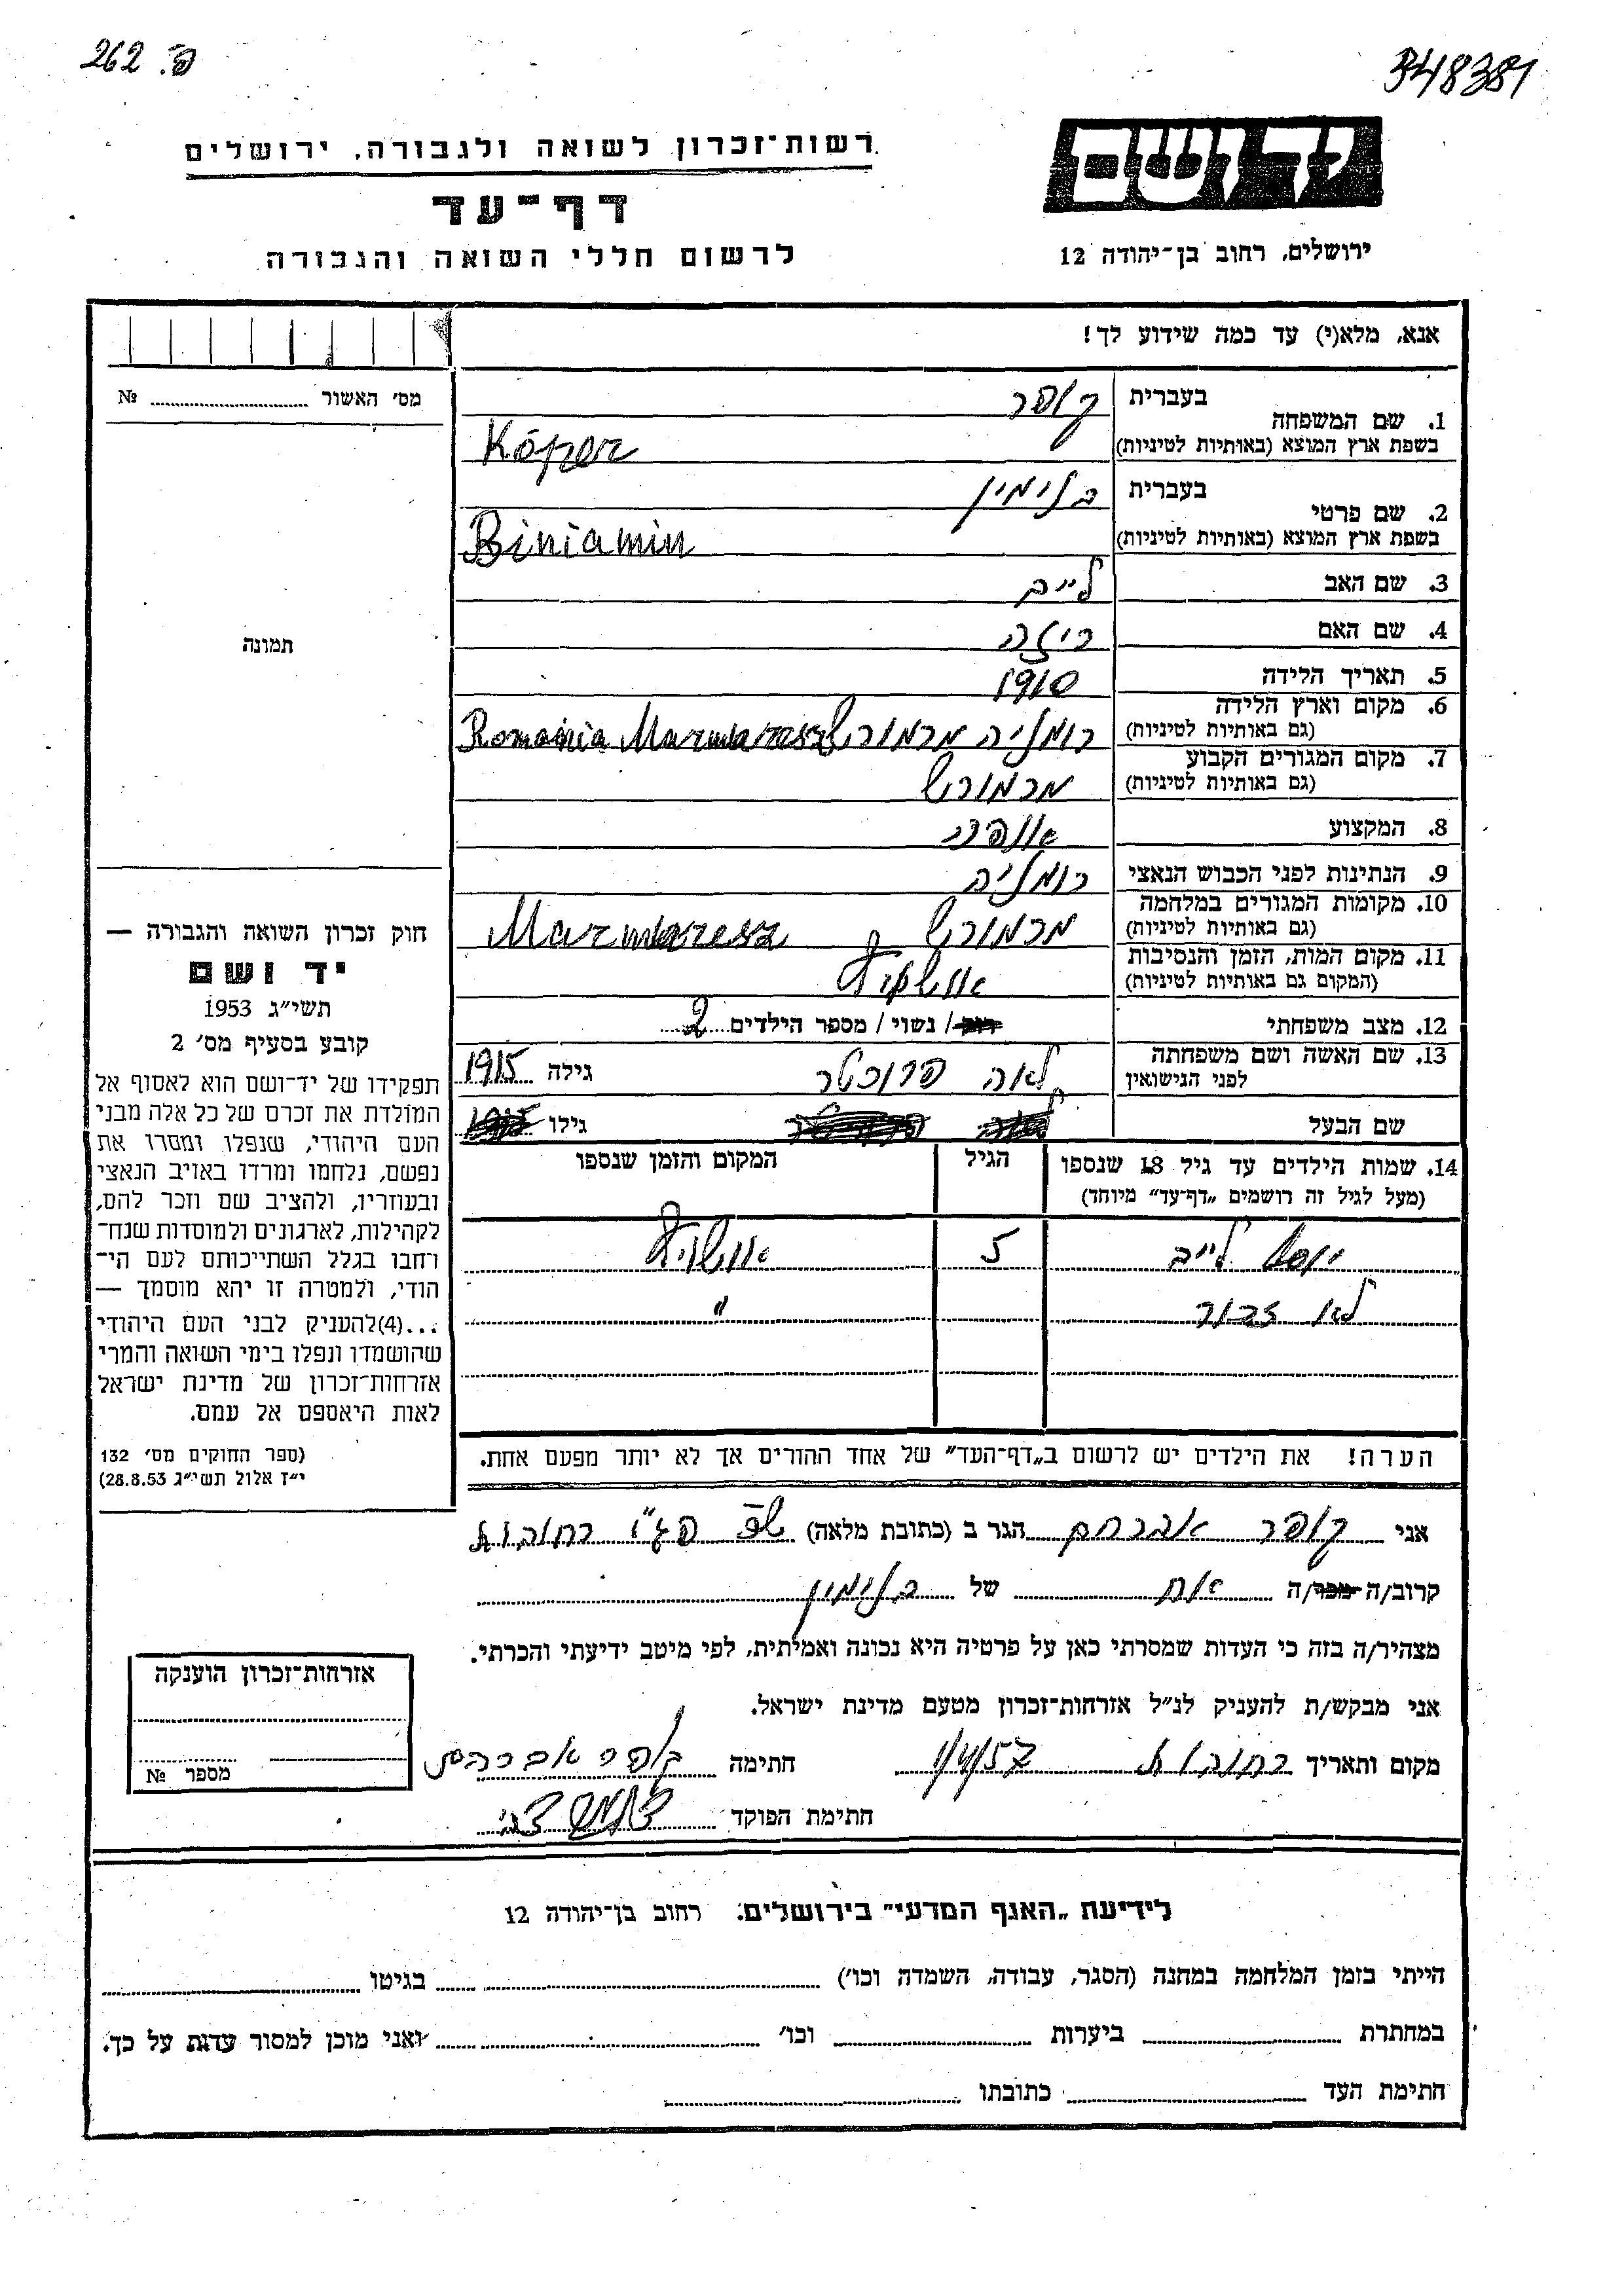 262 .פ
348381
רשות־זכרון לשואה ולגבורה, ירושלים
יד ושם
דף־עד
לרשום חללי השואה והגבורה
ירושלים, רחוב בן־יהודה 12
אנא, מלא(י) עד כמה שידוע לך!
מס׳ האשור № 
1. שם המשפחה בעברית קופר
בשפת ארץ המוצא (באותיות לטיניות) Kóper
2. שם פרטי בעברית בנימין
בשפת ארץ המוצא (באותיות לטיניות) Biniamin
3. שם האב לייב
4. שם האם רייזה
5. תאריך הלידה 1910
6. מקום וארץ הלידה (גם באותיות לטיניות) רומניה מרמורש Romania Marmaresz
7. מקום המגורים הקבוע (גם באותיות לטיניות) מרמורש
8. המקצוע
9. הנתינות לפני הכבוש הנאצי רומניה
10. מקומות המגורים במלחמה (גם באותיות לטיניות) מרמורש Marmaresz
11. מקום המות, הזמן והנסיבות (המקום גם באותיות לטיניות) אושויץ
12. מצב משפחתי רווק/ נשוי/ מספר הילדים 2
13. שם האשה ושם משפחתה לפני הנישואין לאה פרוכטר גילה 1915
שם הבעל גילו
14. שמות הילדים עד גיל 18 שנספו הגיל המקום והזמן שנספו
(מעל לגיל זה רושמים „דף־עד״ מיוחד)
יוסף לייב 5 אושויץ
לא זכור "
תמונה
חוק זכרון השואה והגבורה —
יד ושם
תשי״ג 1953
קובע בסעיף מס׳ 2
תפקידו של יד־ושם הוא לאסוף אל
המולדת את זכרם של כל אלה מבני
העם היהודי, שנפלו ומסרו את
נפשם, נלחמו ומרדו באויב הנאצי
ובעוזריו, ולהציב שם וזכר להם,
לקהילות, לארגונים ולמוסדות שנח־
רבו בגלל השתייכותם לעם הי־
הודי, ולמטרה זו יהא מוסמך —
...(4)להעניק לבני העם היהודי
שהושמדו ונפלו בימי השואה והמרי
אזרחות־זכרון של מדינת ישראל
לאות היאספם אל עמם.
(ספר החוקים מס׳ 132
י״ז אלול תשי״ג 28.8.53)
הערה! את הילדים יש לרשום ב„דף־העד״ של אחד ההורים אך לא יותר מפעם אחת.
אני קופר אברהם הגר ב (כתובת מלאה) רחובות
קרוב/ה מכר/ה אח של בנימין
מצהיר/ה בזה כי העדות שמסרתי כאן על פרטיה היא נכונה ואמיתית, לפי מיטב ידיעתי והכרתי.
אני מבקש/ת להעניק לנ״ל אזרחות־זכרון מטעם מדינת ישראל.
מקום ותאריך רחובות 1/4/57 חתימה קופר אברהם
חתימת הפוקד
אזרחות־זכרון הוענקה
מספר №
לידיעת „האגף המדעי״ בירושלים, רחוב בן־יהודה 12
הייתי בזמן המלחמה במחנה (הסגר, עבודה, השמדה וכו׳) בגיטו
במחתרת ביערות וכו׳ ואני מוכן למסור עדות על כך.
חתימת העד כתובתו